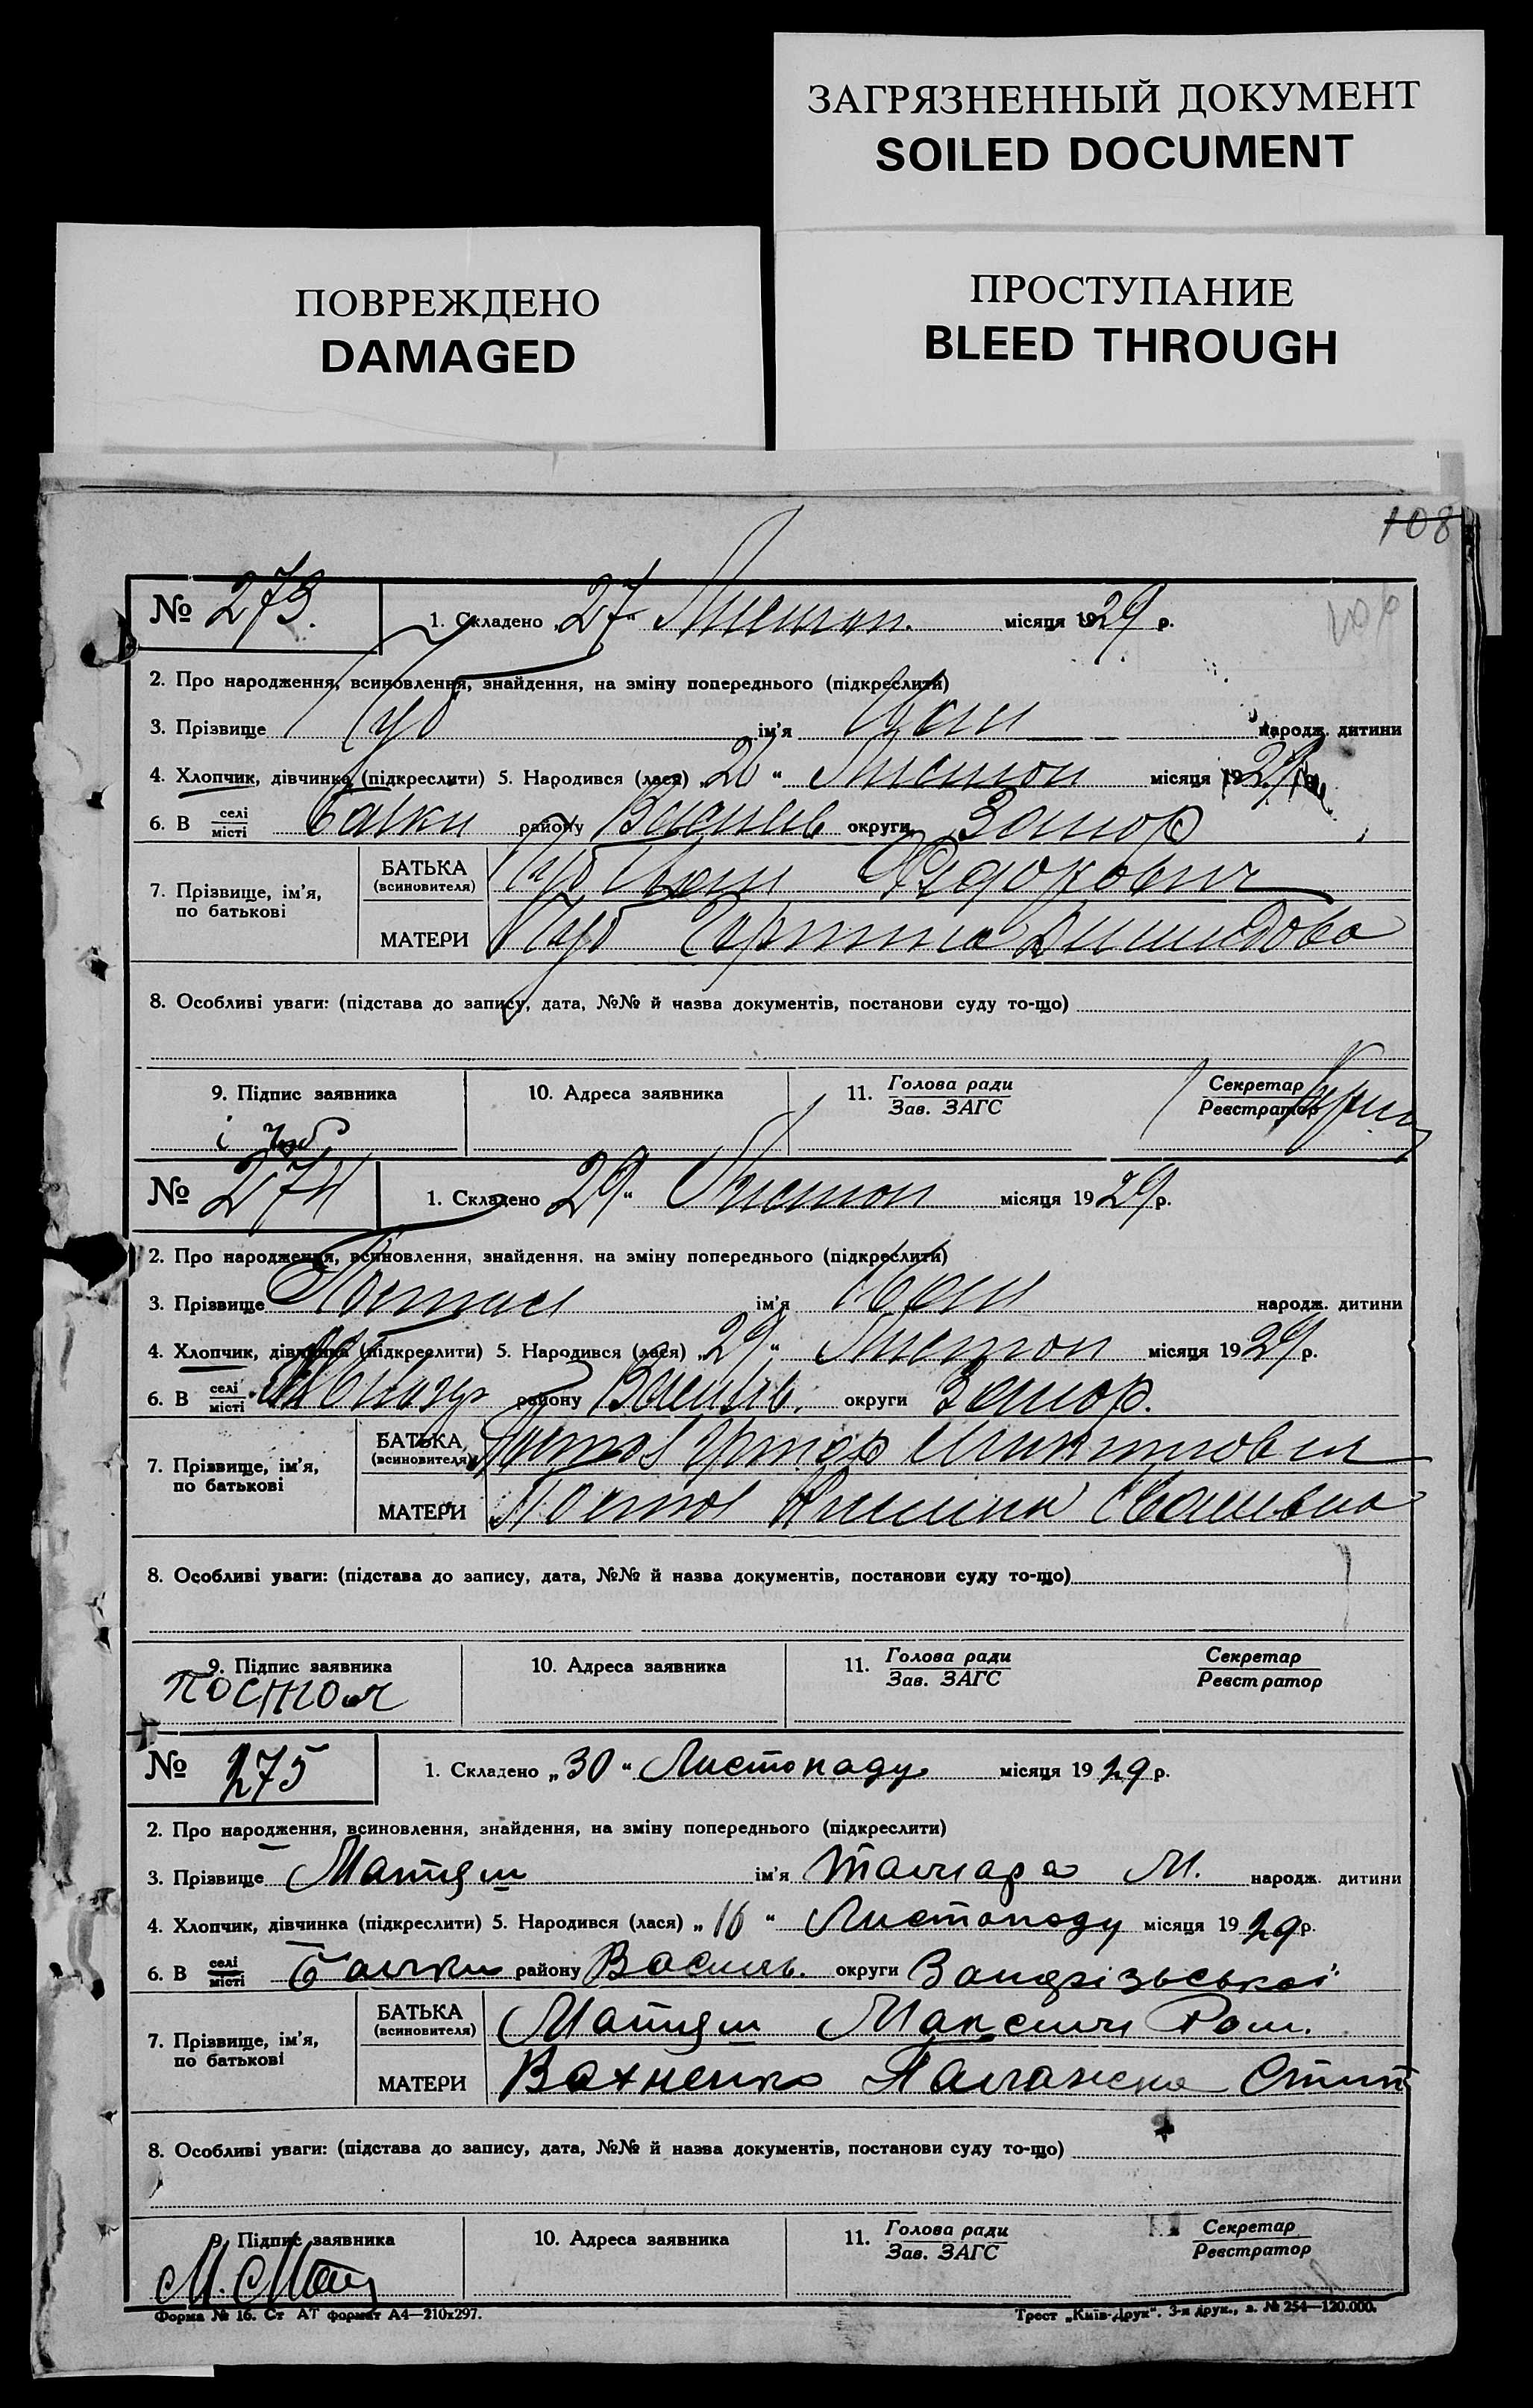 ЗАГРЯЗНЕННЫЙ ДОКУМЕНТ
SOILED DOCUMENT
ПОВРЕЖДЕНО
DAMAGED
ПРОСТУПАНИЕ
BLEED THROUGH
108
№ 273. 1. Складено „27“ Листоп. місяця 1929 р.
2. Про народження, всиновлення, знайдення, на зміну попереднього (підкреслити)
3. Прізвище ім'я Іван народж. дитини
4. Хлопчик, дівчинка (підкреслити) 5. Народився (лася) „26“ Листоп місяця 1929
6. В селі/місті Балки району Василів округи Запор
7. Прізвище, ім'я, по батькові
БАТЬКА (всиновителя) Іван Федорович
МАТЕРИ
8. Особливі уваги: (підстава до запису, дата, №№ й назва документів, постанови суду то-що)
9. Підпис заявника 10. Адреса заявника 11. Голова ради/Зав. ЗАГС Секретар/Реєстратор
№ 274 1. Складено „29“ Листоп місяця 1929 р.
2. Про народження, всиновлення, знайдення, на зміну попереднього (підкреслити)
3. Прізвище ім'я Іван народж. дитини
4. Хлопчик, дівчинка (підкреслити) 5. Народився (лася) „29“ Листоп місяця 1929 р.
6. В селі/місті району Василів. округи Запор.
7. Прізвище, ім'я, по батькові
БАТЬКА (всиновителя) Микитович
МАТЕРИ Постол Іванівна
8. Особливі уваги: (підстава до запису, дата, №№ й назва документів, постанови суду то-що)
9. Підпис заявника 10. Адреса заявника 11. Голова ради/Зав. ЗАГС Секретар/Реєстратор
Постол
№ 275 1. Складено „30“ Листопаду місяця 1929 р.
2. Про народження, всиновлення, знайдення, на зміну попереднього (підкреслити)
3. Прізвище Матяш ім'я Тамара М. народж. дитини
4. Хлопчик, дівчинка (підкреслити) 5. Народився (лася) „16“ Листопаду місяця 1929 р.
6. В селі/місті Балки району Василів. округи
7. Прізвище, ім'я, по батькові
БАТЬКА (всиновителя) Матяш Максим Ром.
МАТЕРИ Вахненко Палажка
8. Особливі уваги: (підстава до запису, дата, №№ й назва документів, постанови суду то-що)
9. Підпис заявника 10. Адреса заявника 11. Голова ради/Зав. ЗАГС Секретар/Реєстратор
Форма № 16. Ст АТ формат А4—210x297. Трест „Київ-Друк“. 3-я друк., з. № 254—120.000.